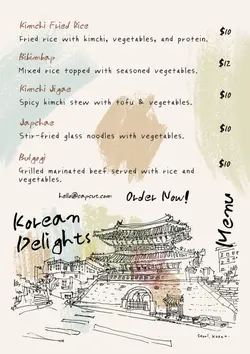 Kimchi Fried Rice
$10
Fried rice with kimchi, vegetables, and protein.
Bibimbap
$12
Mixed rice topped with seasoned vegetables.
Kimchi Jigae
$10
Spicy kimchi stew with tofu & vegetables.
Japchae
$10
Stir-fried glass noodles with vegetables.
Bulgogi
$10
Grilled marinated beef. served with rice and
vegetables.
hello@capcut.com
Order Now!
Korean
Delights
Menu
Seoul, Korea